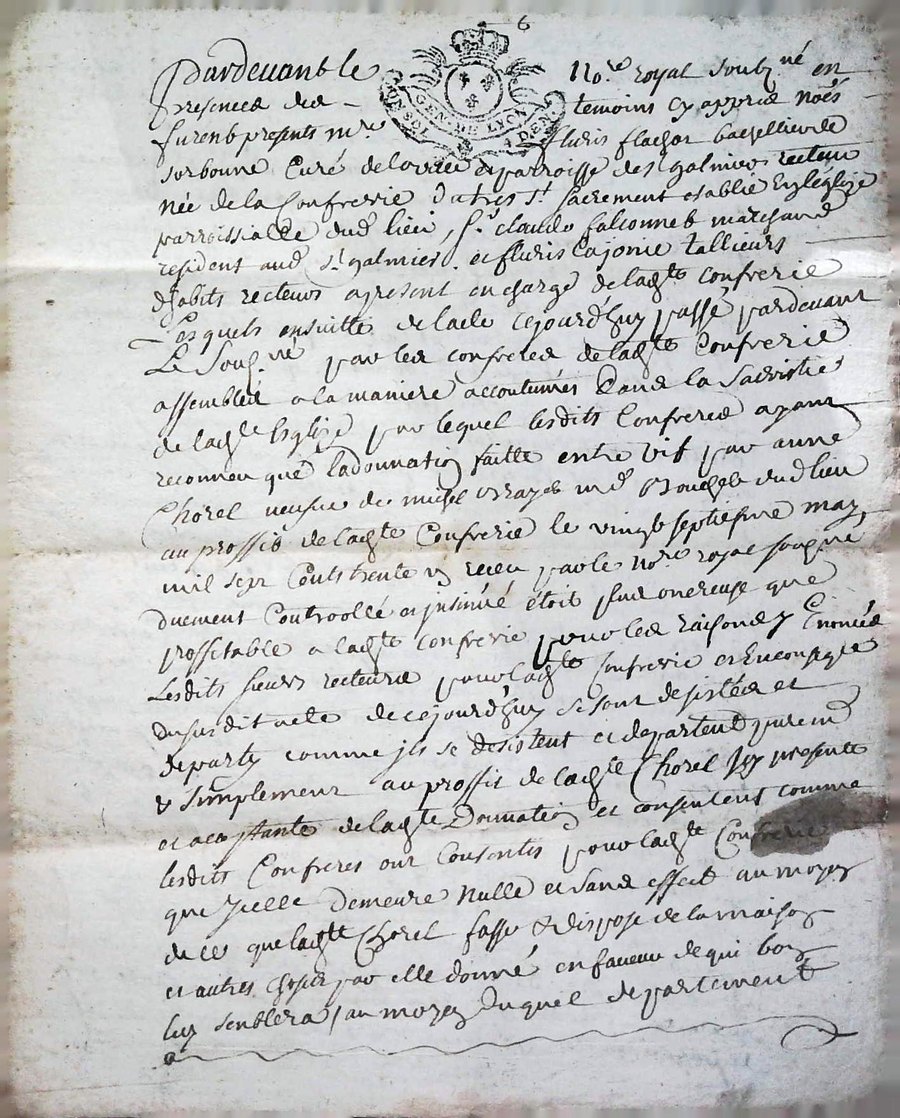 6
GEN. DE LYON
Pardevant le no.re royal soubz.né en
presence des temoins cy apprés nom̃és
furent presents m.re fluris flachat bachellier de
sorbonne Curé de la ville et parroisse de s.t galmier recteur
née de la Confrerie du tres s.t sacrement establie En l'églize
parroissialle dud. lieu, s.r claude falconnet marchand
resident aud. s.t galmier, et fluris Lajonie tallieurs
d'habits recteurs a present en charge de lad.te confrerie
Lesquels ensuitte de lacte cejourd'huy passé pardevant
Le Soug.né par les confreres de lad.te Confrerie
assemblés a la maniere accoutumée Dans la Sacristie
de lad.te Esglize par lequel lesdits Confreres ayant
reconneu que la donnation faitte entre vif par anne
Chorel veufve de michel m.d Boucher dud. lieu
au proffit de lad.te Confrerie le vingt septiesme may
mil sept Cents trente receu par le no.re royal sougné
duement Controollé et insinué étoit plus onereuse que
proffitable a lad.te confrerie pour les raisons y Enoncées
Lesdits sieurs recteurs pour lad.te Confrerie et En consequence
du susdit acte de cejourd'huy se sont desistés et
departy comme ils se desistent et departent purem.t
& simplement au proffit de lad.te Chorel Icy presente
et acceptante de lad.te Donnation et consentent comme
lesdits Confreres ont Consentis pour lad.te Confrerie
que Icelle demeure nulle et sans effect au moyen
de ce que lad.te Chorel fasse & dispose de la maison
et autres choses par elle donné en faveur de qui bon
luy semblera, au moyen duquel departement